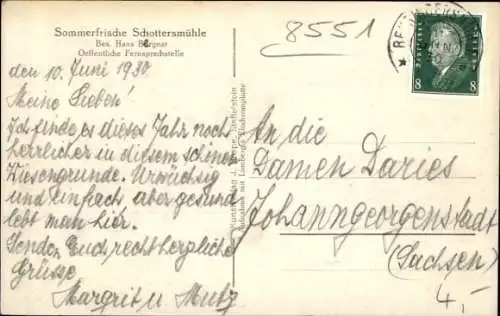 Sommerfrische Schottersmühle
Bes. Hans Begnat
Oeffentliche Fernsprechstelle
8551
den 10. Juni 1930.
Meine Lieben!
Ich finde es dieses Jahr noch
herrlicher in diesem schönen
Wiesengrunde. Urwüchsig
und einfach aber gesund
lebt man hier.
Senden Euch recht herzliche
Grüsse
Margrit u. Mutz
Kunstverlag J.
Aufnahme mit
DEUTSCHES REICH
8 8
An die
Damen Daries
Johanngeorgenstadt
(Sachsen)
4,-